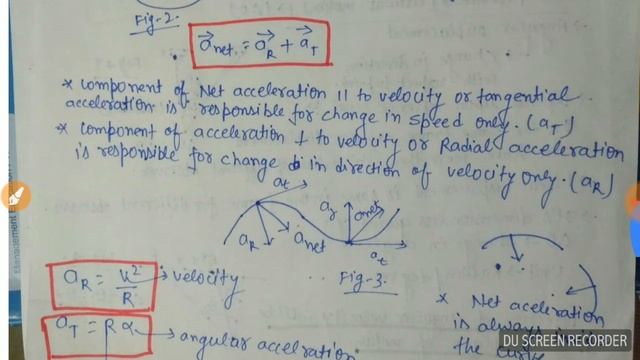 Fig-2.
a⃗net = a⃗R + a⃗T
* component of Net acceleration || to velocity or tangential
acceleration is responsible for change in speed only. (aT)
* component of acceleration ⊥ to velocity or Radial acceleration
is responsible for change in direction of velocity only. (aR)
at
aR
anet
ar
anet
at
Fig-3.
aR = v²/R → velocity
aT = Rα → angular accelration
* Net aceleration
is always
the
DU SCREEN RECORDER